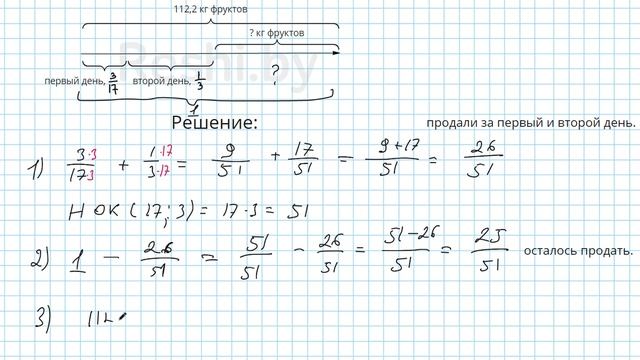 112,2 кг фруктов
? кг фруктов
первый день, 3/17 второй день, 1/3 ?
1
Reshi.by
Решение:
продали за первый и второй день.
1) 3·3/17·3 + 1·17/3·17 = 9/51 + 17/51 = 9+17/51 = 26/51
НОК(17; 3) = 17·3 = 51
2) 1 - 26/51 = 51/51 - 26/51 = 51-26/51 = 25/51 осталось продать.
3) 112